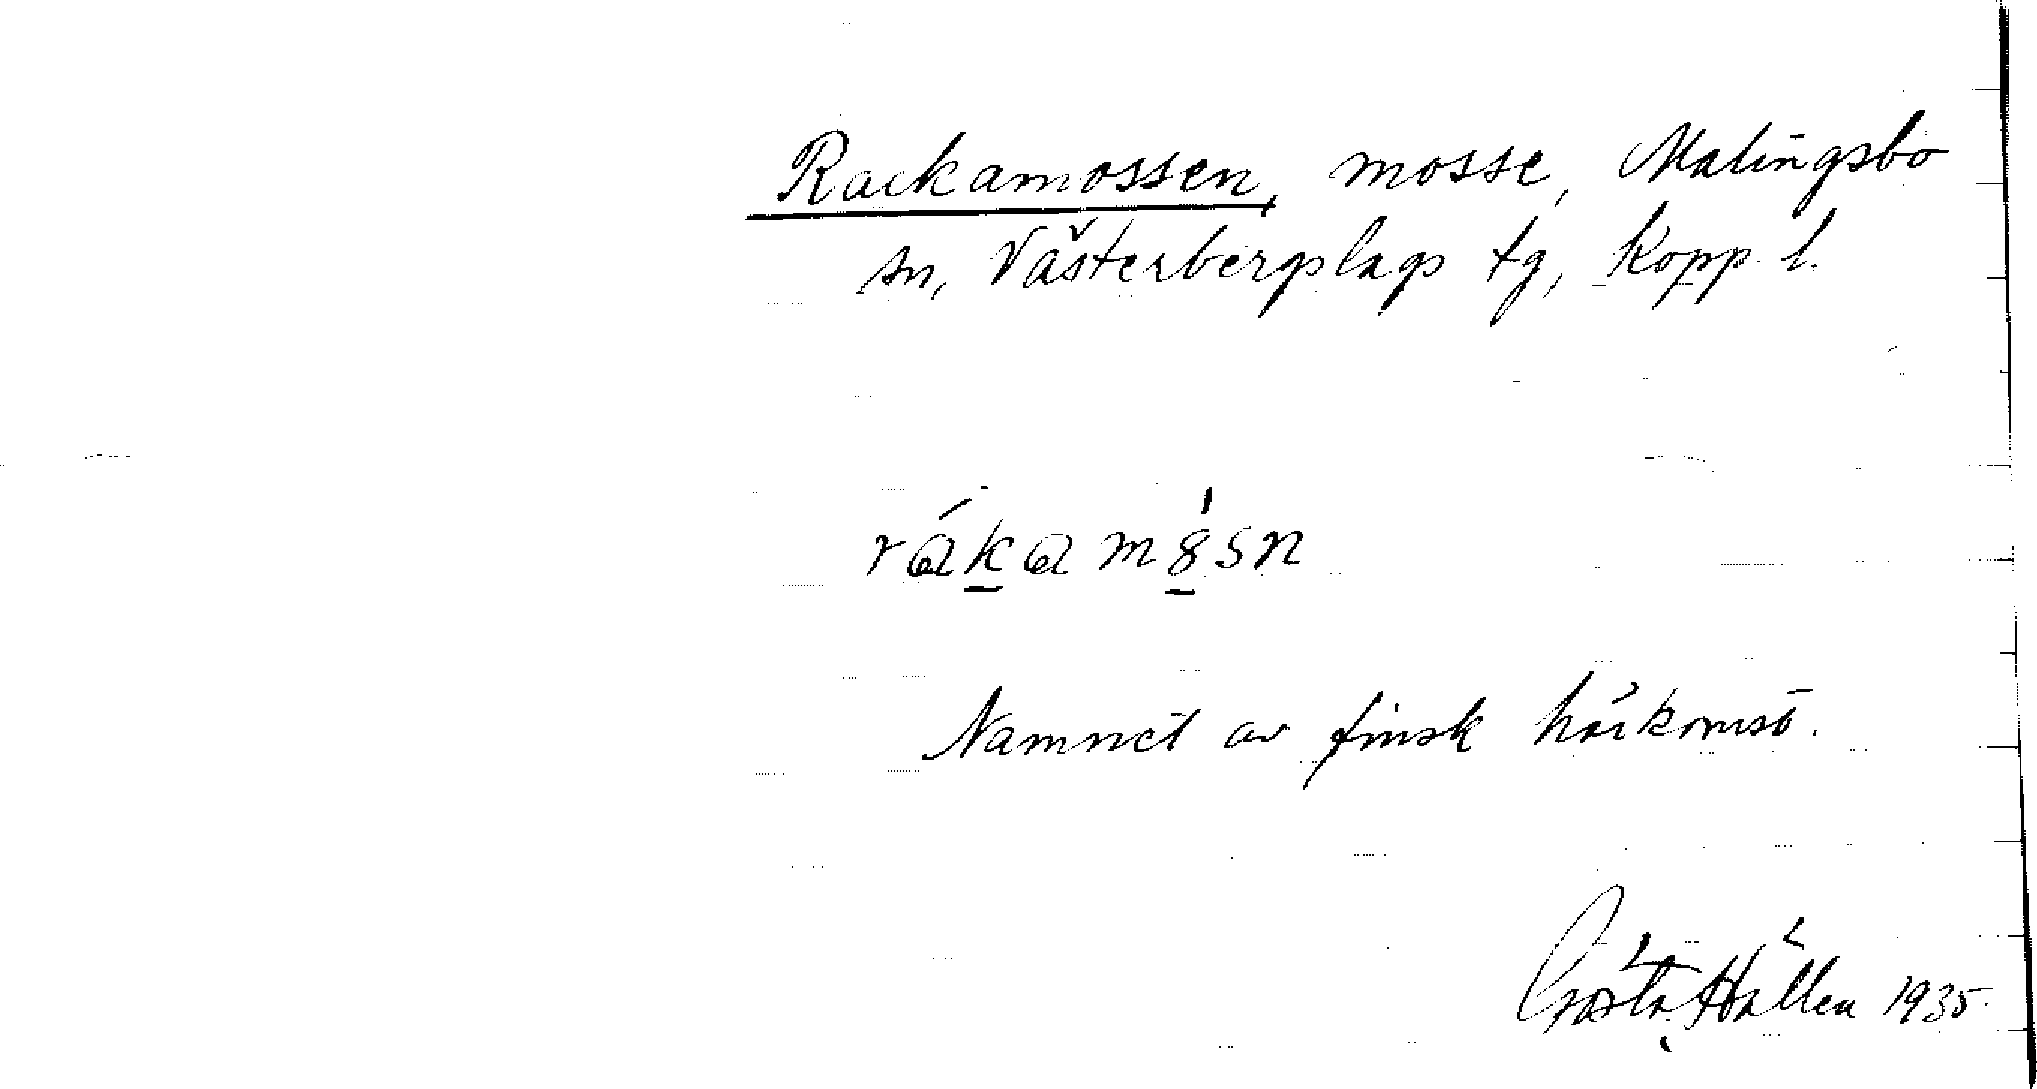 Rackamossen, mosse, Malingsbo
sn, Västerbergslags tg, Kopp. l.
rákamósn
Namnet av finsk härkomst.
Gösta Hällen 1935.